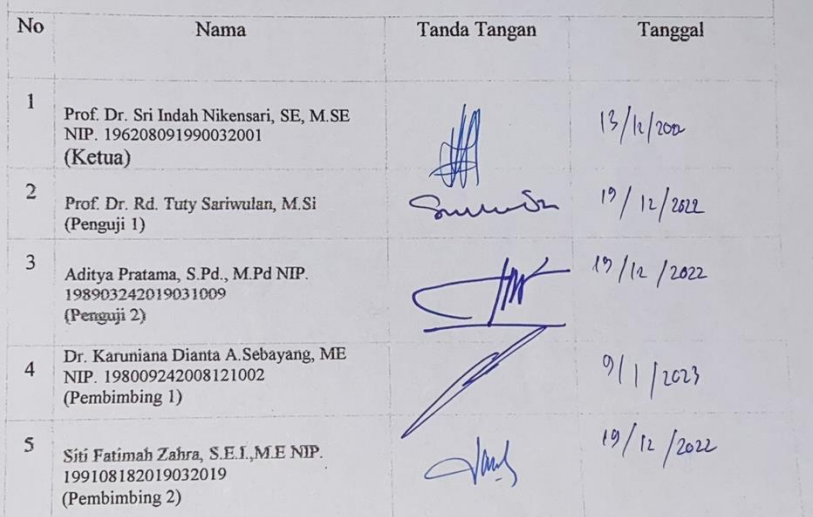 No Nama Tanda Tangan Tanggal
1 Prof. Dr. Sri Indah Nikensari, SE, M.SE
NIP. 196208091990032001
(Ketua)
13/12/2022
2 Prof. Dr. Rd. Tuty Sariwulan, M.Si
(Penguji 1)
19/12/2022
3 Aditya Pratama, S.Pd., M.Pd NIP.
198903242019031009
(Penguji 2)
19/12/2022
4 Dr. Karuniana Dianta A.Sebayang, ME
NIP. 198009242008121002
(Pembimbing 1)
9/1/2023
5 Siti Fatimah Zahra, S.E.I.,M.E NIP.
199108182019032019
(Pembimbing 2)
19/12/2022